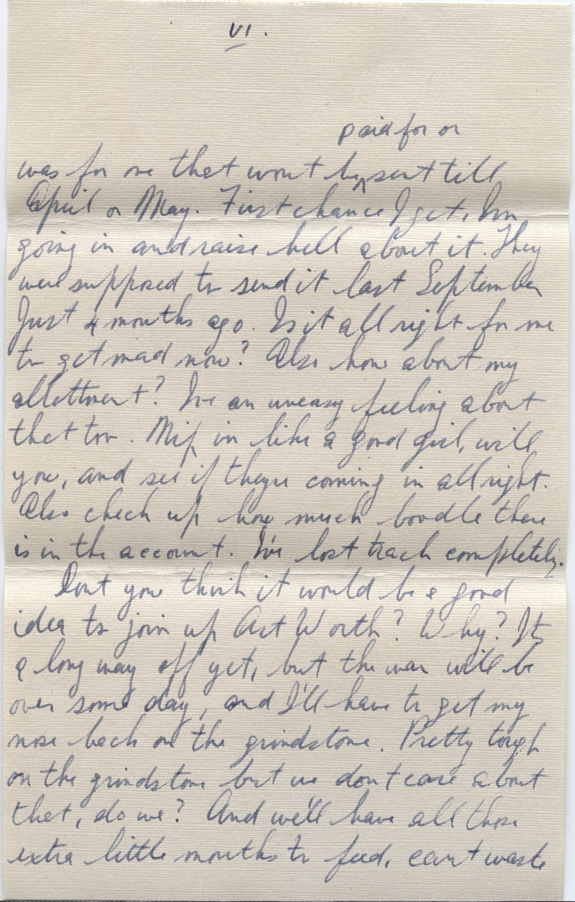 VI.
paid for or
was for me that wont be ^ sent till
April or May. First chance I get, Im
going in and raise hell about it. They
were supposed to send it last September
Just 4 months ago. Is it all right for me
to get mad now? Also how about my
allottment? I've an uneasy feeling about
that too. in like a good girl, will
you, and see if theyre coming in allright.
Also check up how much boodle there
is in the account. I've lost track completely.
Dont you think it would be a good
idea to join up Art Worth? Why? Its
a long way off yet, but the war will be
over some day, and I'll have to get my
nose back on the grindstone. Pretty tough
on the grindstone but we dont care about
that, do we? And we'll have all those
extra little mouths to feed, cant waste